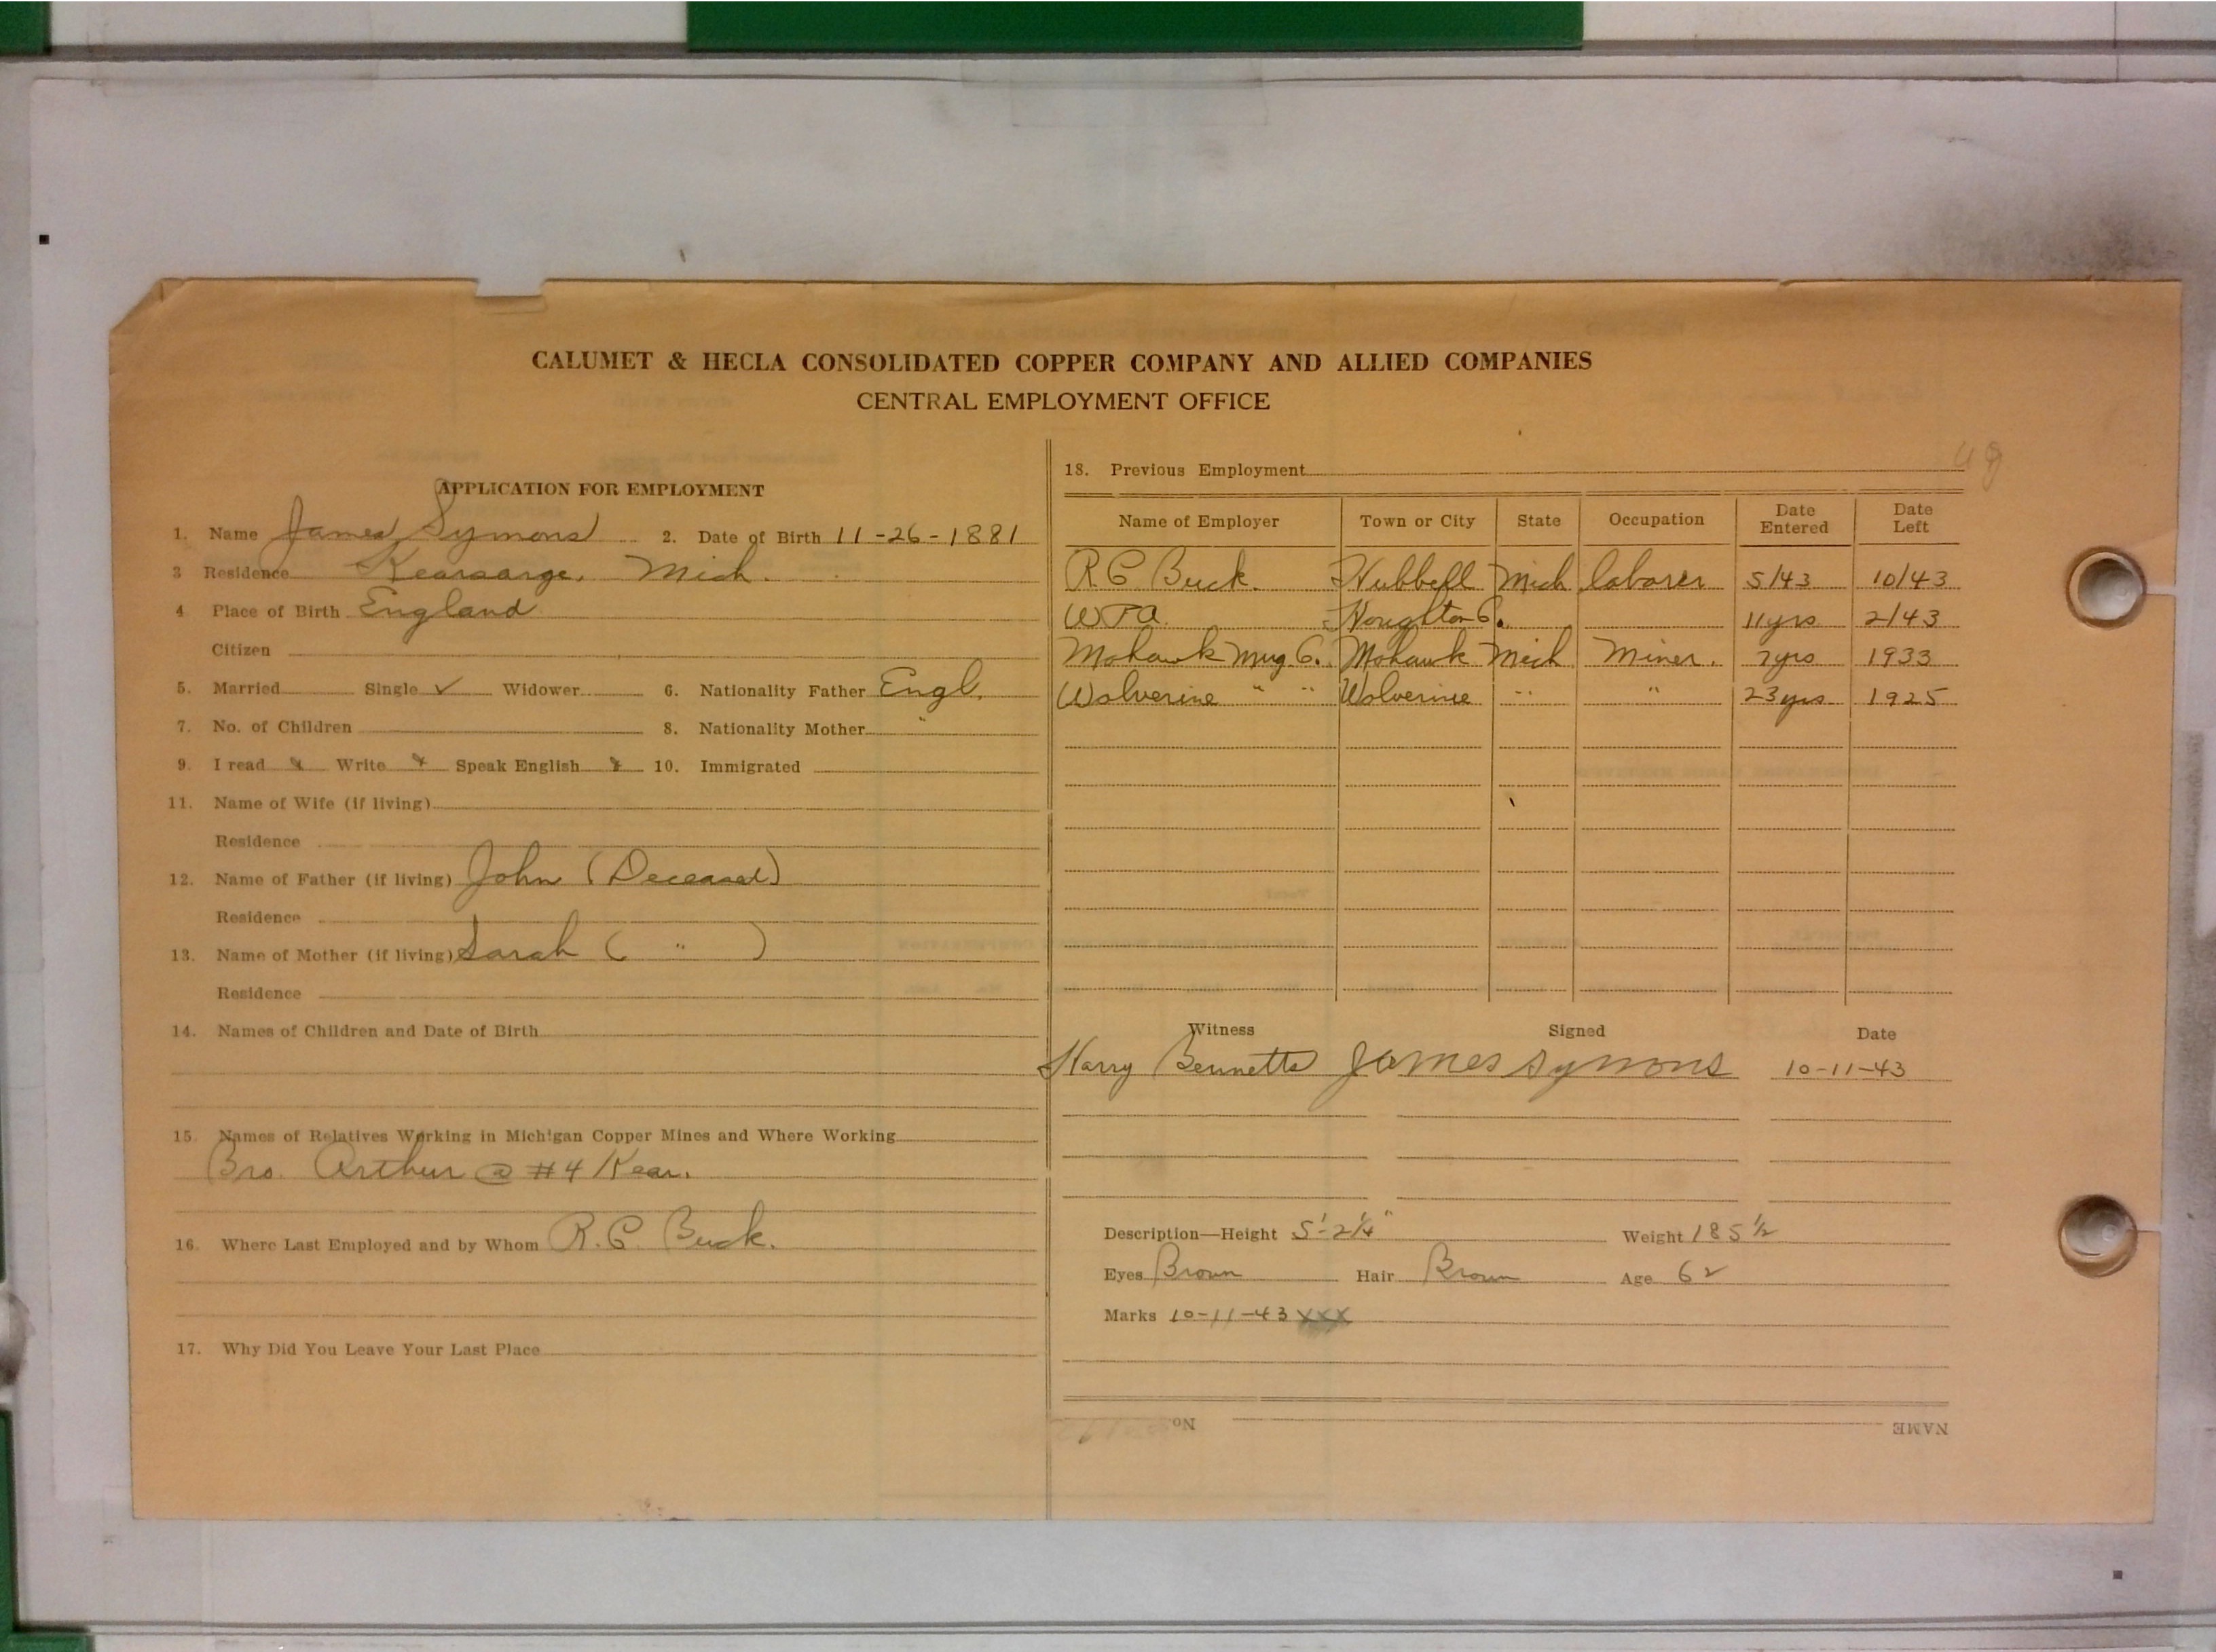 CALUMET & HECLA CONSOLIDATED COPPER COMPANY AND ALLIED COMPANIES
CENTRAL EMPLOYMENT OFFICE
APPLICATION FOR EMPLOYMENT
1. Name James Symons 2. Date of Birth 11-26-1881
3 Residence Kearsarge, Mich.
4 Place of Birth England
Citizen
5. Married Single ✓ Widower 6. Nationality Father Engl.
7. No. of Children 8. Nationality Mother "
9. I read x Write x Speak English x 10. Immigrated
11. Name of Wife (if living)
Residence
12. Name of Father (if living) John (Deceased)
Residence
13. Name of Mother (if living) Sarah ( " )
Residence
14. Names of Children and Date of Birth
15. Names of Relatives Working in Michigan Copper Mines and Where Working
Bro. Arthur @ #4 Kear.
16. Where Last Employed and by Whom R.C. Buck.
17. Why Did You Leave Your Last Place
18. Previous Employment
Name of Employer Town or City State Occupation Date Entered Date Left
R C Buck. Hubbell Mich laborer 5/43 10/43
WPA. Houghton Co. 11yrs 2/43
Mohawk Mng Co. Mohawk Mich Miner. 7yrs 1933
Wolverine " " Wolverine " " 23yrs 1925
Witness Signed Date
Harry Bennetts James Symons 10-11-43
Description—Height 5'-2¼" Weight 185½
Eyes Brown Hair Brown Age 62
Marks 10-11-43 XXX
No. NAME